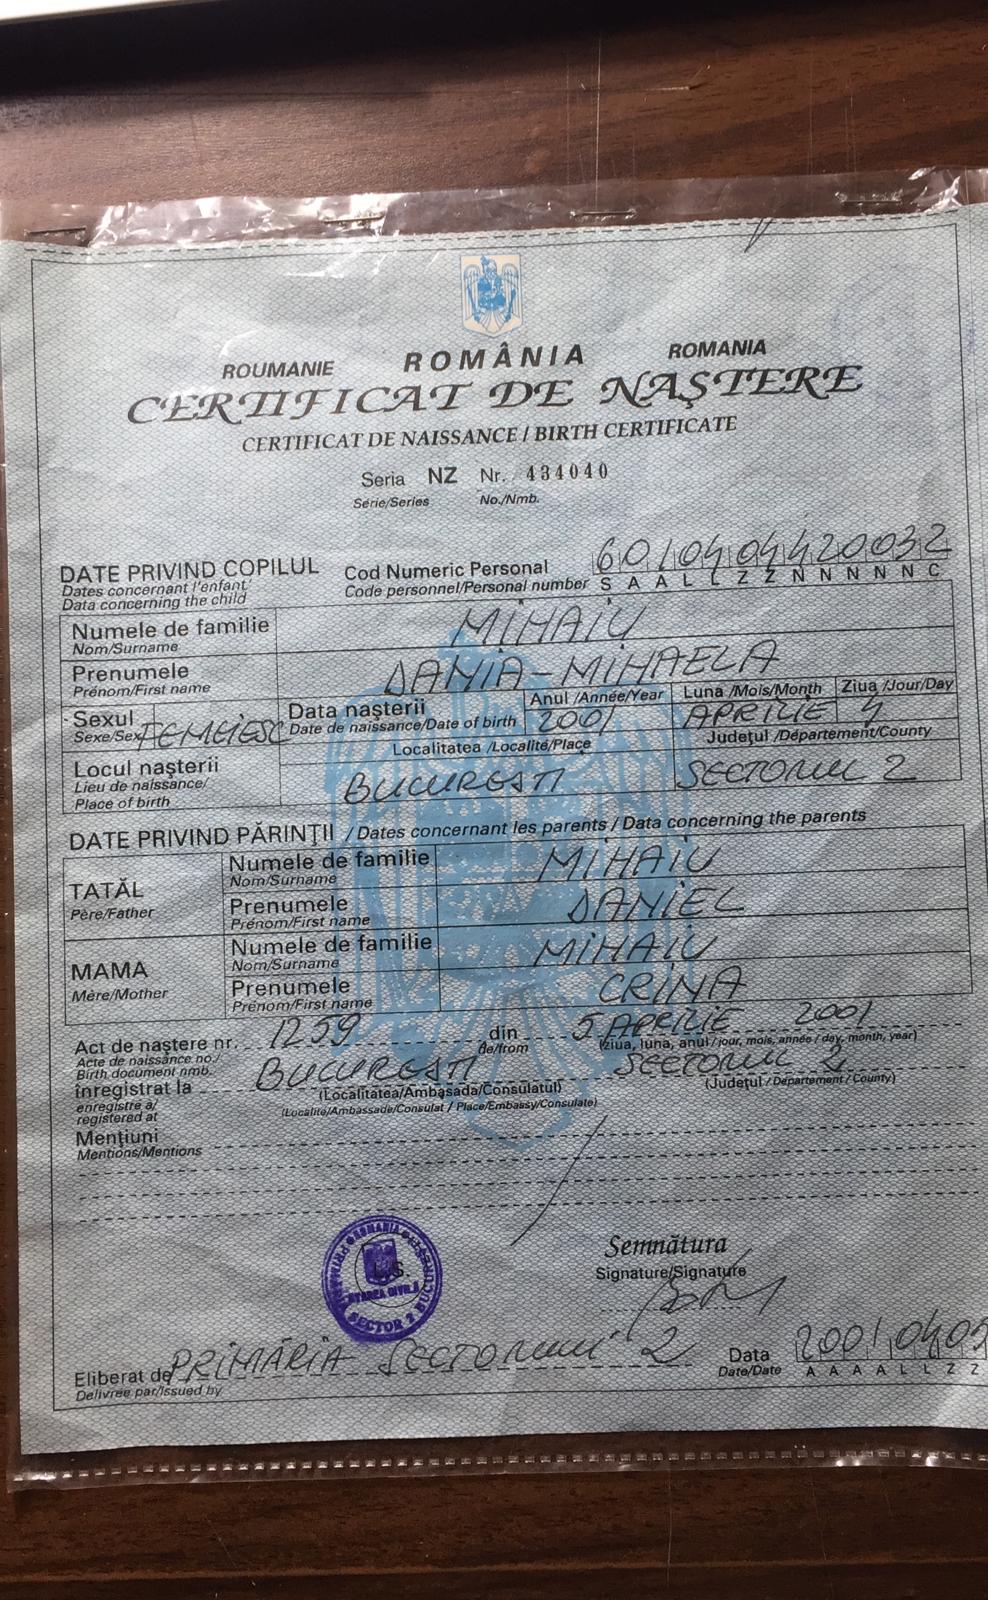 ROUMANIE ROMÂNIA ROMANIA
CERTIFICAT DE NAŞTERE
CERTIFICAT DE NAISSANCE / BIRTH CERTIFICATE
Seria NZ Nr. 434040
Série/Series No./Nmb.
DATE PRIVIND COPILUL
Dates concernant l'enfant/
Data concerning the child
Cod Numeric Personal 6010404420032
Code personnel/Personal number S A A L L Z Z N N N N N C
Numele de familie MIHAIU
Nom/Surname
Prenumele DANIA-MIHAELA
Prénom/First name
Sexul FEMEIESC
Sexe/Sex
Data naşterii
Date de naissance/Date of birth
Anul /Année/Year Luna /Mois/Month Ziua /Jour/Day
2001 APRILIE 4
Locul naşterii
Lieu de naissance/
Place of birth
Localitatea /Localité/Place Judeţul /Département/County
BUCUREŞTI SECTORUL 2
DATE PRIVIND PĂRINŢII / Dates concernant les parents / Data concerning the parents
TATĂL
Père/Father
Numele de familie MIHAIU
Nom/Surname
Prenumele DANIEL
Prénom/First name
MAMA
Mère/Mother
Numele de familie MIHAIU
Nom/Surname
Prenumele CRINA
Prénom/First name
Act de naştere nr. 1259 din 5 APRILIE 2001
Acte de naissance no./ de/from (ziua, luna, anul / jour, mois, année / day, month, year)
Birth document nmb.
înregistrat la BUCUREŞTI SECTORUL 2
enregistré a/ (Localitatea/Ambasada/Consulatul) (Judeţul / Département / County)
registered at (Localité/Ambassade/Consulat / Place/Embassy/Consulate)
Menţiuni
Mentions/Mentions
ROMANIA
PRIMĂRIA SECTOR 2 BUCUREŞTI
L.S.
STAREA CIVILĂ
Semnătura
Signature/Signature
Eliberat de PRIMĂRIA SECTORULUI 2
Délivrée par/Issued by
Data 20010405
Date/Date A A A A L L Z Z